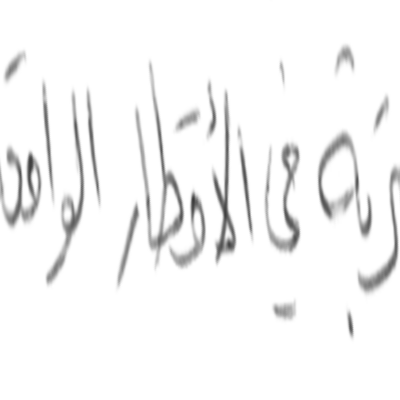 ربة في الأقطار الواق